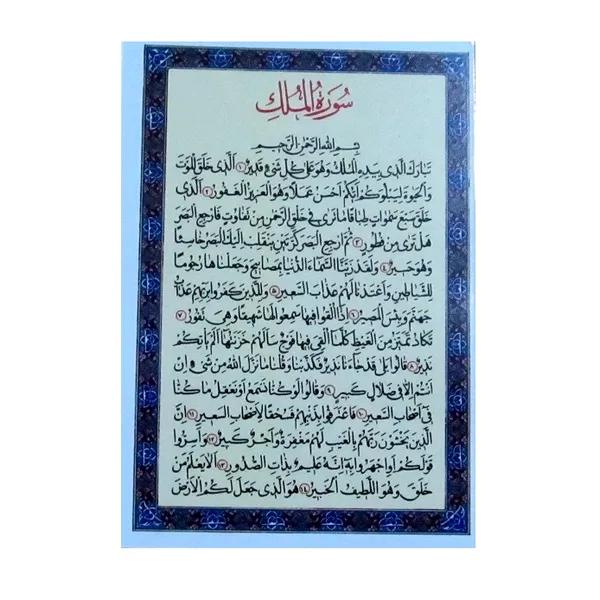 سُورَةُ الْمُلْكِ
بِسْمِ اللهِ الرَّحْمٰنِ الرَّحِيمِ
تَبَارَكَ الَّذِى بِيَدِهِ الْمُلْكُ وَهُوَ عَلَى كُلِّ شَىْءٍ قَدِيرٌ ١ اَلَّذِى خَلَقَ الْمَوْتَ
وَالْحَيٰوةَ لِيَبْلُوَكُمْ اَيُّكُمْ اَحْسَنُ عَمَلًا وَهُوَ الْعَزِيزُ الْغَفُورُ ٢ اَلَّذِى
خَلَقَ سَبْعَ سَمٰوَاتٍ طِبَاقًا مَا تَرٰى فِى خَلْقِ الرَّحْمٰنِ مِنْ تَفَاوُتٍ فَارْجِعِ الْبَصَرَ
هَلْ تَرٰى مِنْ فُطُورٍ ٣ ثُمَّ ارْجِعِ الْبَصَرَ كَرَّتَيْنِ يَنْقَلِبْ اِلَيْكَ الْبَصَرُ خَاسِئًا
وَهُوَ حَسِيرٌ ٤ وَلَقَدْ زَيَّنَّا السَّمَاءَ الدُّنْيَا بِمَصَابِيحَ وَجَعَلْنَاهَا رُجُومًا
لِلشَّيَاطِينِ وَاَعْتَدْنَا لَهُمْ عَذَابَ السَّعِيرِ ٥ وَلِلَّذِينَ كَفَرُوا بِرَبِّهِمْ عَذَابُ
جَهَنَّمَ وَبِئْسَ الْمَصِيرُ ٦ اِذَا اُلْقُوا فِيهَا سَمِعُوا لَهَا شَهِيقًا وَهِىَ تَفُورُ ٧
تَكَادُ تَمَيَّزُ مِنَ الْغَيْظِ كُلَّمَا اُلْقِىَ فِيهَا فَوْجٌ سَاَلَهُمْ خَزَنَتُهَا اَلَمْ يَاْتِكُمْ
نَذِيرٌ ٨ قَالُوا بَلٰى قَدْ جَاءَنَا نَذِيرٌ فَكَذَّبْنَا وَقُلْنَا مَا نَزَّلَ اللهُ مِنْ شَىْءٍ اِنْ
اَنْتُمْ اِلَّا فِى ضَلَالٍ كَبِيرٍ ٩ وَقَالُوا لَوْ كُنَّا نَسْمَعُ اَوْ نَعْقِلُ مَا كُنَّا
فِى اَصْحَابِ السَّعِيرِ ١٠ فَاعْتَرَفُوا بِذَنْبِهِمْ فَسُحْقًا لِاَصْحَابِ السَّعِيرِ ١١ اِنَّ
الَّذِينَ يَخْشَوْنَ رَبَّهُمْ بِالْغَيْبِ لَهُمْ مَغْفِرَةٌ وَاَجْرٌ كَبِيرٌ ١٢ وَاَسِرُّوا
قَوْلَكُمْ اَوِ اجْهَرُوا بِهِ اِنَّهُ عَلِيمٌ بِذَاتِ الصُّدُورِ ١٣ اَلَا يَعْلَمُ مَنْ
خَلَقَ وَهُوَ اللَّطِيفُ الْخَبِيرُ ١٤ هُوَ الَّذِى جَعَلَ لَكُمُ الْاَرْضَ